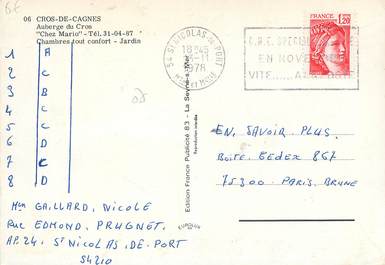 06 CROS-DE-CAGNES
Auberge du Cros
"Chez Mario" - Tél.31-04-87
Chambres tout confort - Jardin
1 A
2 C
3 B
4 C
5 C
6 D
7 C
8 D
Mlle GAILLARD, NICOLE
RUE EDMOND, PRUGNET.
AP.24. ST NICOLAS-DE-PORT
54210
Edition France Publicité 83 - La Seyne-s-Mer
Reproduction interdite
54 ST NICOLAS DU PORT
18H45
-11
1978
MTHE ET MOSELLE
EN NOVEMBRE
VITE
FRANCE
1,20
EN. SAVOIR PLUS.
BOITE. CEDEX 867
75300 - PARIS. BRUNE